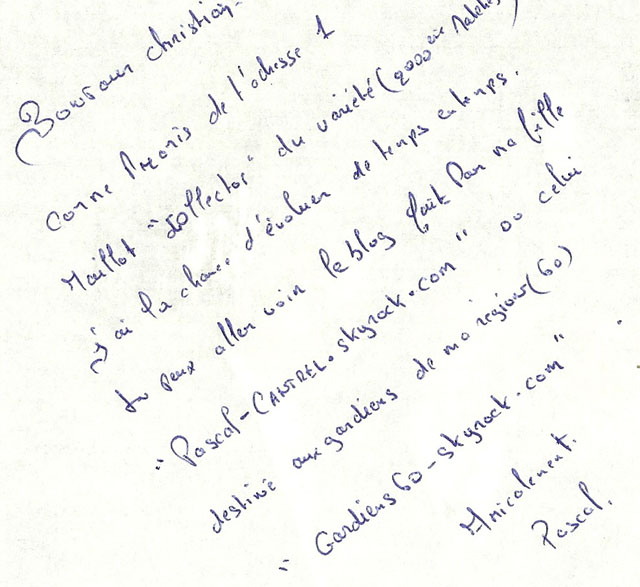 Bonjour Christian.
Comme Promis de l'adresse 1
Maillot "Collector" du variété (2000ème Match)
J'ai la chance d'évoluer de temps en temps.
tu peux aller voir le blog fait Par ma fille
"Pascal-CANTREL.skyrock.com" ou celui
destiné aux gardiens de ma région (60)
"Gardiens60-skyrock.com"
Amicalement.
Pascal.